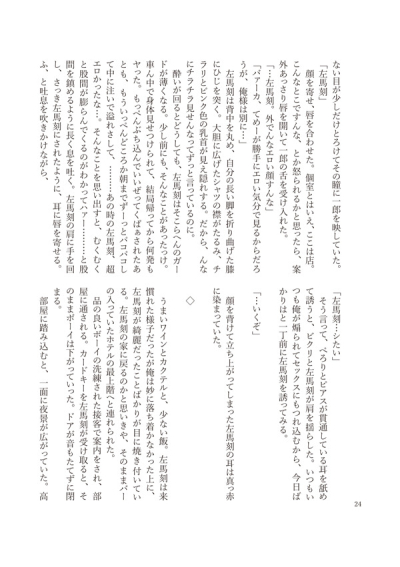 ない目が少しだけとろけてその瞳に一郎を映していた。
「左馬刻」
　顔を寄せ、唇を合わせた。個室とはいえ、ここは店。
こんなとこですんな、とか怒られるかと思ったら、案
外あっさり唇を開いて一郎の舌を受け入れた。
「…左馬刻。外でんなエロい顔すんな」
「バァーカ、てめーが勝手にエロい気分で見るからだろ
うが、俺様は別に…」
　左馬刻は背中を丸め、自分の長い脚を折り曲げた膝
にひじを突く。大胆に広げたシャツの襟がたるみ、チ
ラリとピンク色の乳首が見え隠れする。だから、んな
にチラチラ見せんなってずっと言っているのに。
　酔いが回るとどうしても、左馬刻はそこらへんのガー
ドが薄くなる。少し前にも、そんなことがあったっけ。
車ん中で身体見せつけられて、結局帰ってから何発も
ヤった。もっぺんぶち込んでいいぜってくぱあされたあ
とも、もういっぺんどころか朝まですーっとパコパコし
て中に注いで溢れさせて、………あの時の左馬刻、超
エロかったな…。そんなことを思い出すと、むくむく
と股間が膨らんでくるのがわかってハァー………と股
間を鎮めるように長く息を吐く。左馬刻の肩に手を回
し、さっき左馬刻にされたように、耳に唇を寄せる。
ふ、と吐息を吹きかけながら、
「左馬刻…かたい」
　そう言って、ぺろりとピアスが貫通している耳を舐め
て誘うと、ビクリと左馬刻が肩を揺らした。いつもい
つも俺が煽られてセックスにもつれ込むから、今日ば
かりはと一丁前に左馬刻を誘ってみる。
「…いくぞ」
　顔を背けて立ち上がってしまった左馬刻の耳は真っ赤
に染まっていた。
◇
　うまいワインとカクテルと、少ない飯。左馬刻は来
慣れた様子だったが俺は妙に落ち着かなかった上に、
左馬刻が綺麗だったことばかりが目に焼き付いてい
る。左馬刻の家に戻るのかと思いきや、そのままバー
の入っていたホテルの最上階へと連れられた。
　品の良いボーイの洗練された接客で案内をされ、部
屋に通される。カードキーを左馬刻が受け取ると、そ
のままボーイは下がっていった。ドアが音もたてずに閉
まる。
　部屋に踏み込むと、一面に夜景が広がっていた。高
24